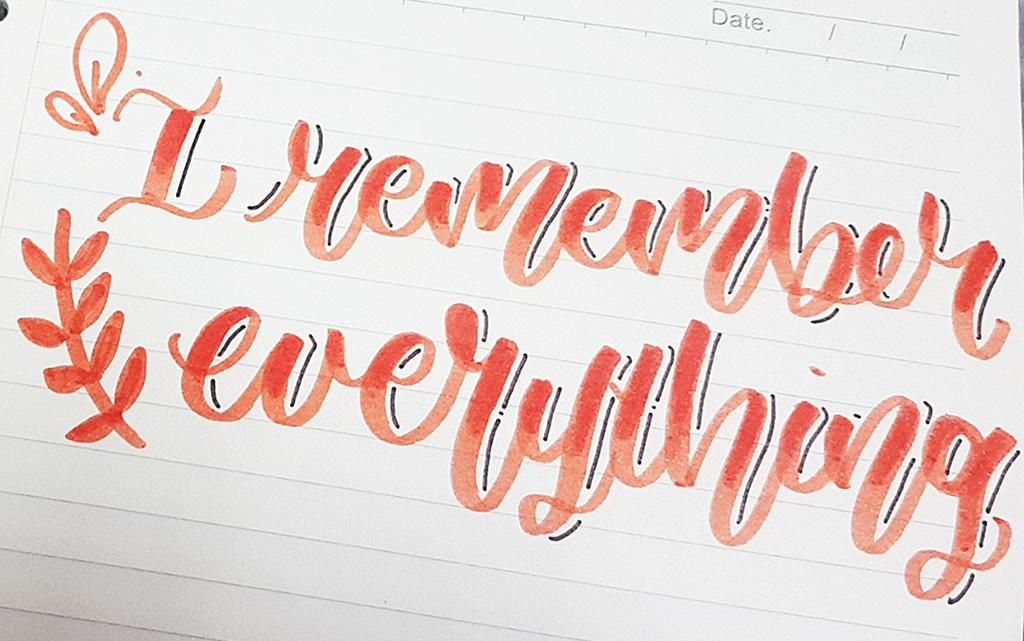 Date. / /
I remember
everything